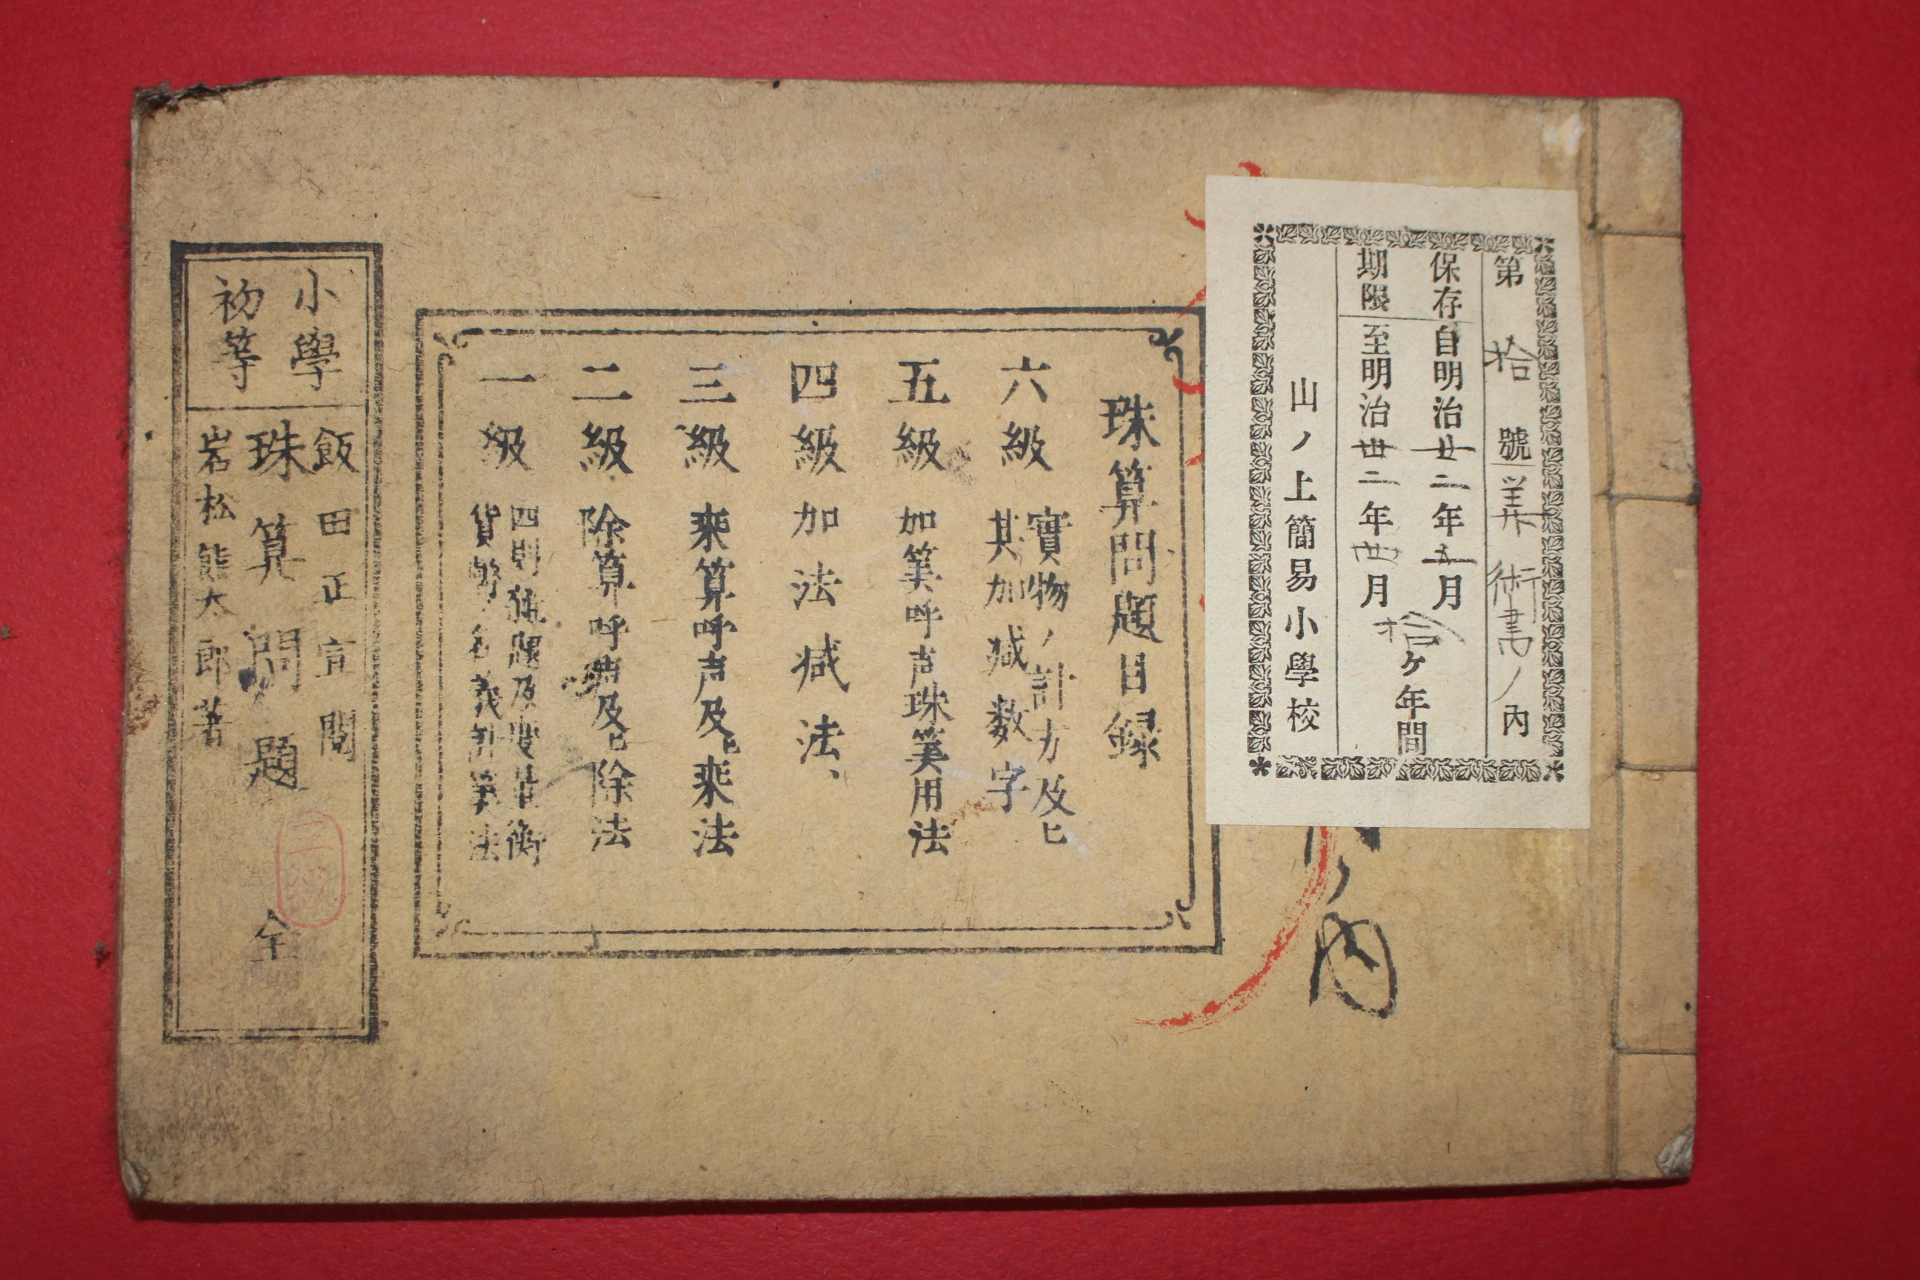 第拾號算術書ノ內
保存自明治廿二年五月
期限至明治卅二年四月
拾ケ年間
山ノ上簡易小學校
ノ内
珠算問題目録
六級
實物ノ計方及ヒ
其加減数字
五級
加筭呼声珠筭用法
四級
加法減法、
三級
乘算呼声及ヒ乘法
二級
除算呼声及ヒ除法
一級
四則 及度量衡
貨幣ノ名義 算法
小學
初等
飯田正宣閲
珠算問題 全
岩松熊太郎著
三級